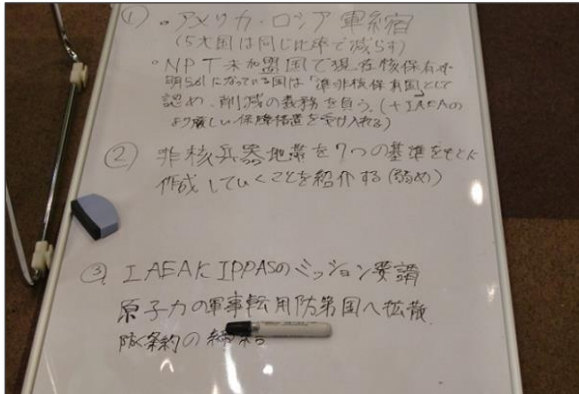 ① ・アメリカ・ロシア軍縮
(5大国は同じ比率で減らす)
・NPT未加盟国で現在核保有が
明らかになっている国は「準非核保有国」として
認め、削減の義務を負う。(+IAEAの
より厳しい保障措置を受け入れる)
② 非核兵器地帯を7つの基準をもとに
作成していくことを紹介する(弱め)
③ IAEAにIPPASのミッション要請
原子力の軍事転用防 国へ拡散
条約の締結